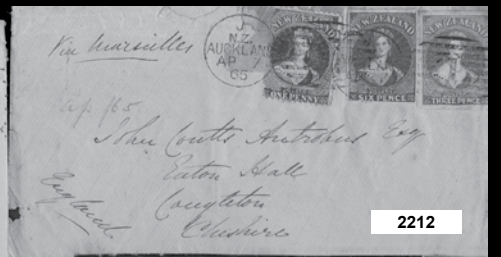 Via Marseilles
J
N.Z.
AUCKLAND
AP 7
65
NEW ZEALAND
ONE PENNY
NEW ZEALAND
SIX PENCE
NEW ZEALAND
THREE PENCE
Ap /65
John Coutts Antrobus Esq
Eaton Hall
Congleton
Cheshire
England
2212